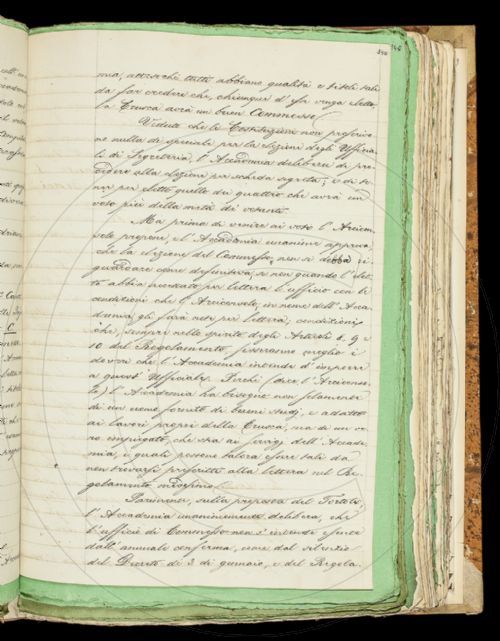 346
mia, attesochè tutti abbiano qualità e titoli tali
da far credere che, chiunque d'essi venga eletto,
la Crusca avrà un buon Commesso.
Veduto che le Costituzioni non prescrivo-
no nulla di speciale per la elezione degli Ufficia-
li di Segreteria, l'Accademia delibera di pro-
cedere alla elezione per scheda segreta; e di te-
ner per eletto quello dei quattro che avrà un
voto più della metà de' votanti.
Ma prima di venire ai voti l'Arcicon-
solo propone, e l'Accademia unanime approva,
che la elezione del Commesso non si debba ri-
guardare come definitiva, se non quando l'elet-
to abbia accettato per lettera l'ufficio con le
condizioni che l'Arciconsolo, in nome dell'Acca-
demia gli farà note per lettera; condizioni,
che, sempre nello spirito degli Articoli 8, 9 e
10 del Regolamento, preciseranno meglio i
doveri che l'Accademia intende d'imporre
a quest'Uffiziale. Perchè (dice l'Arciconso-
lo) l'Accademia ha bisogno non solamente
di un uomo fornito di buoni studj, e adatto
ai lavori propri della Crusca, ma di un ve-
ro impiegato, che stia ai servigj dell'Accade-
mia, i quali possono talora esser tali da
non trovarsi prescritti alla lettera nel Re-
golamento medesimo.
Parimente, sulla proposta del Tortoli,
l'Accademia unanimemente delibera, che
l'ufficio di Commesso non s'intenda esente
dall'annuale conferma, come dal silenzio
del Decreto de' 3 di gennaio, e del Regola-